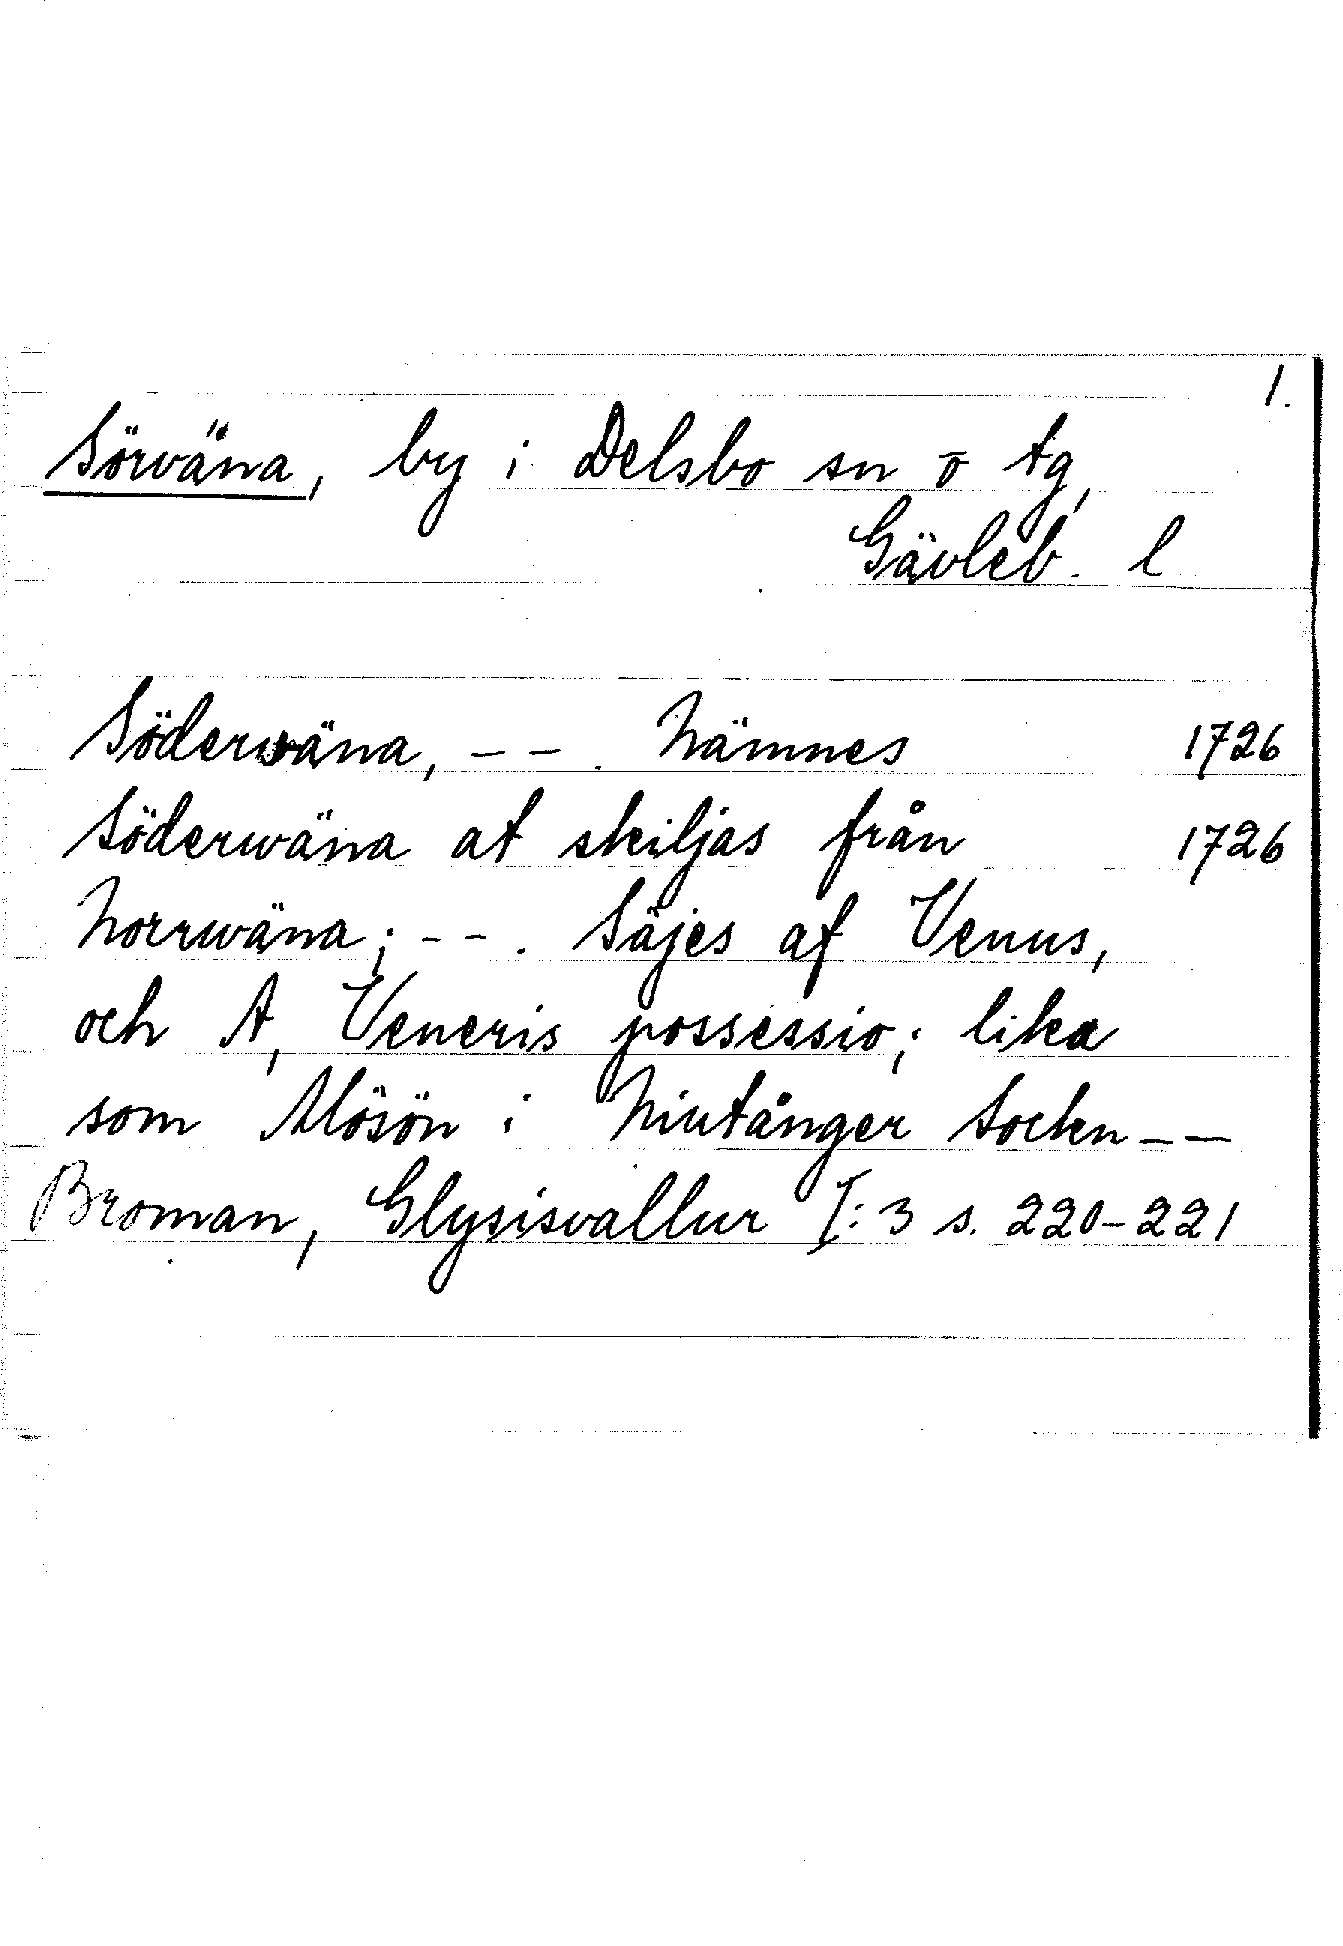 1.
Sörväna, by i Delsbo sn o tg,
Gävleb. l
Söderwäna, – – . Nämnes 1726
Söderwäna at skiljas från 1726
Norrwäna; - - . Säjes af Venus,
och A, Veneris possessio; lika
som Alösön i Niutånger Sockn – –
Broman, Glysisvallur I: 3 s. 220-221